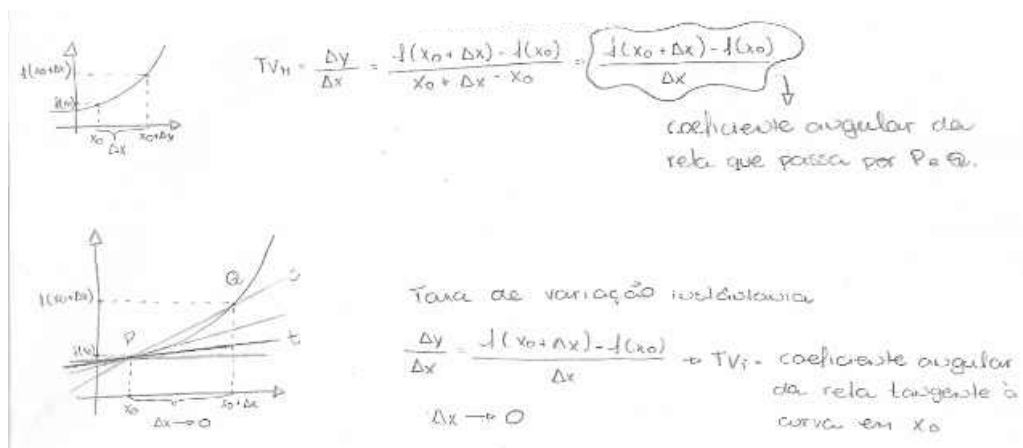 f(x₀+Δx)
f(x₀)
x₀ x₀+Δx
Δx
TVₘ = Δy/Δx = f(x₀ + Δx) - f(x₀) / x₀ + Δx - x₀ = f(x₀ + Δx) - f(x₀) / Δx
coeficiente angular da
reta que passa por P e Q.
f(x₀+Δx)
f(x₀)
P
Q
s
t
x₀ x₀+Δx
Δx → 0
Taxa de variação instantânea
Δy/Δx = f(x₀+Δx) - f(x₀) / Δx → TVᵢ = coeficiente angular
da reta tangente à
curva em x₀
Δx → 0